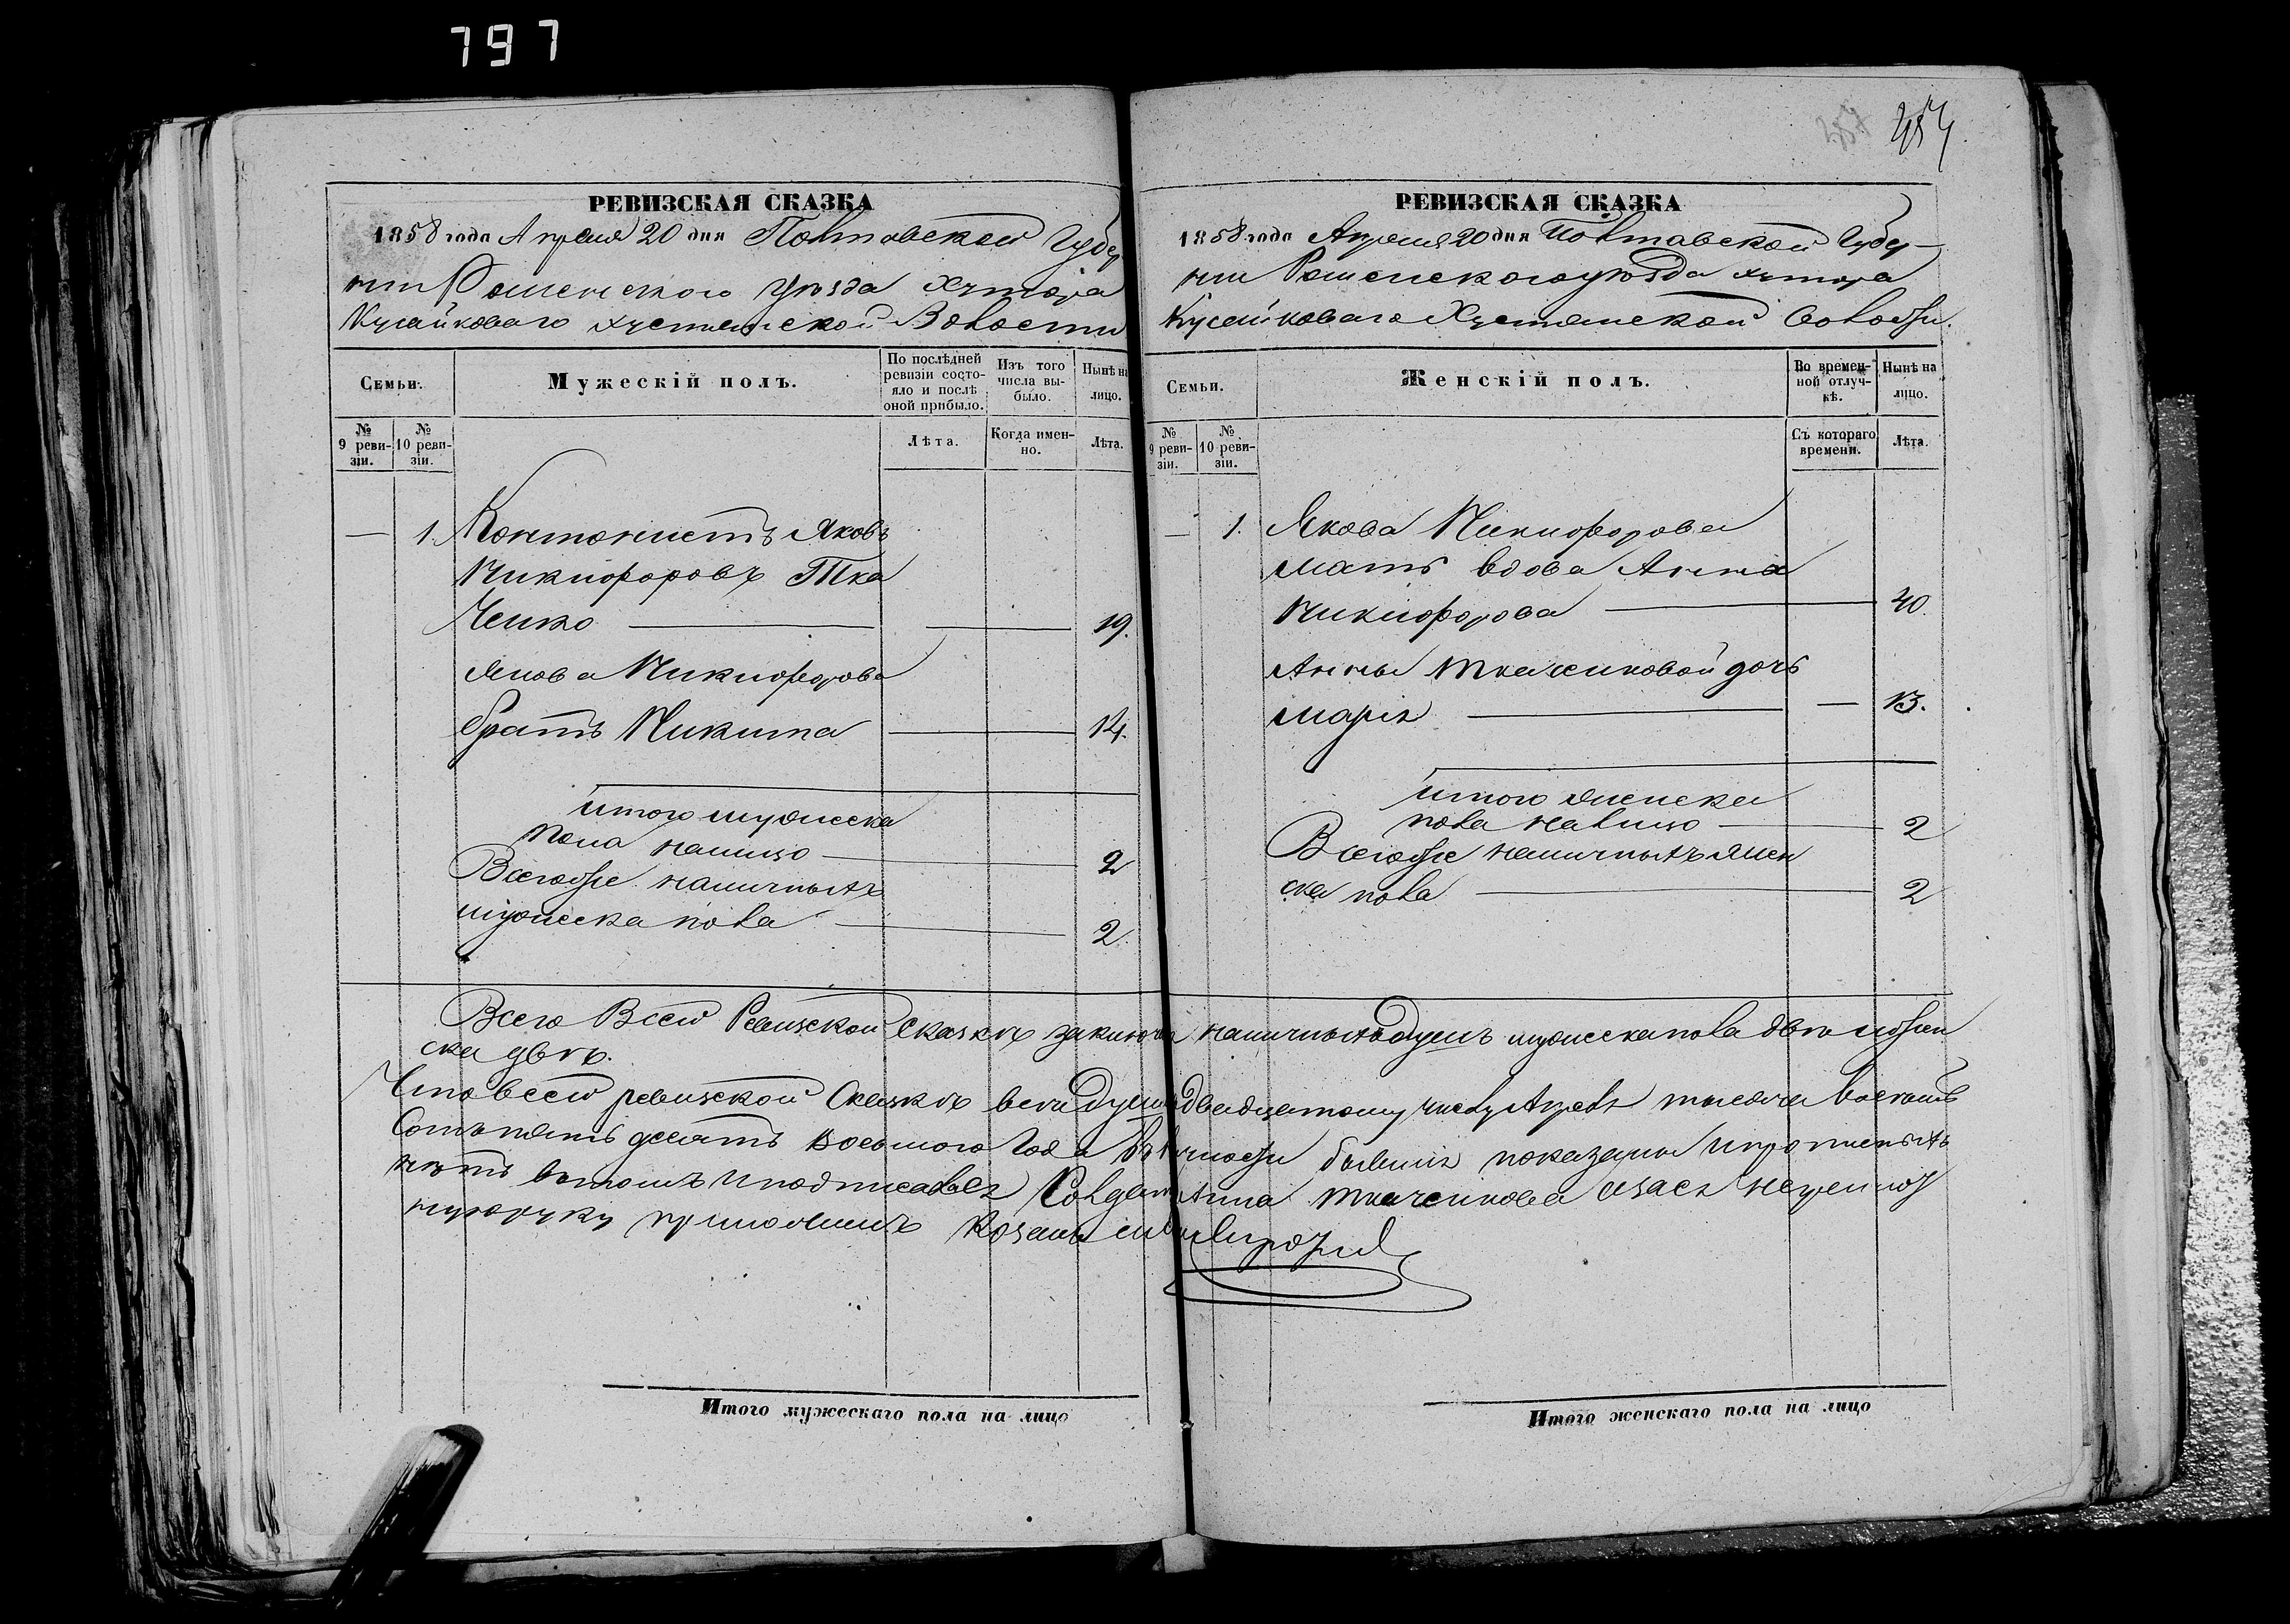 797
454
РЕВИЗСКАЯ СКАЗКА
1858 года Апреля 20 дня Полтавской Губер
нии Роменского уезда хутора
Кусайковаго Хустянской Волости
Семьи.
Мужескій полъ.
По послѣдней ревизіи состо-яло и послѣ оной прибыло.
Изъ того числа вы-было.
Нынѣ на лицо.
№ 9 реви-зіи.
№ 10 реви-зіи.
Лѣта.
Когда имен-но.
Лѣта.
— 1. Кантонистъ Яковъ
Никифоровъ Тка
Ченко — 19.
Якова Никифорова
братъ Никита — 14.
итого мужеска
пола налицо — 2
Всегоже наличныхъ
мужеска пола — 2.
РЕВИЗСКАЯ СКАЗКА
1858 года Апреля 20 дня Полтавской Губер-
нии Роменского уезда хутора
Кусайковаго Хустянской Волости.
Семьи.
Женскій полъ.
Во времен-ной отлуч-кѣ.
Нынѣ на лицо.
№ 9 реви-зіи.
№ 10 реви-зіи.
Съ котораго времени.
Лѣта.
— 1. Якова Никифорова
мать вдова Анна
Никифорова — 40.
Анны Ткаченковой дочь
марія — 13.
итого женска
пола налицо — 2
Всегоже наличныхъ жен
ска пола — 2
Всего Всей Ревизской сказкѣ заключ наличныхъ душъ мужеска пола двѣ ижен
ска двѣ.
Что всей ревизской Сказкѣ все души двадцатому числу Апреля тысяча восемь
Сотъ пять десятъ восьмого Года вналичности бывшия показаны и прописныхъ
нѣтъ втомъ и подписалась Солдатка Анна Ткаченкова а за ея неуменіем
Козакъ
Итого мужескаго пола на лицо
Итого женскаго пола на лицо